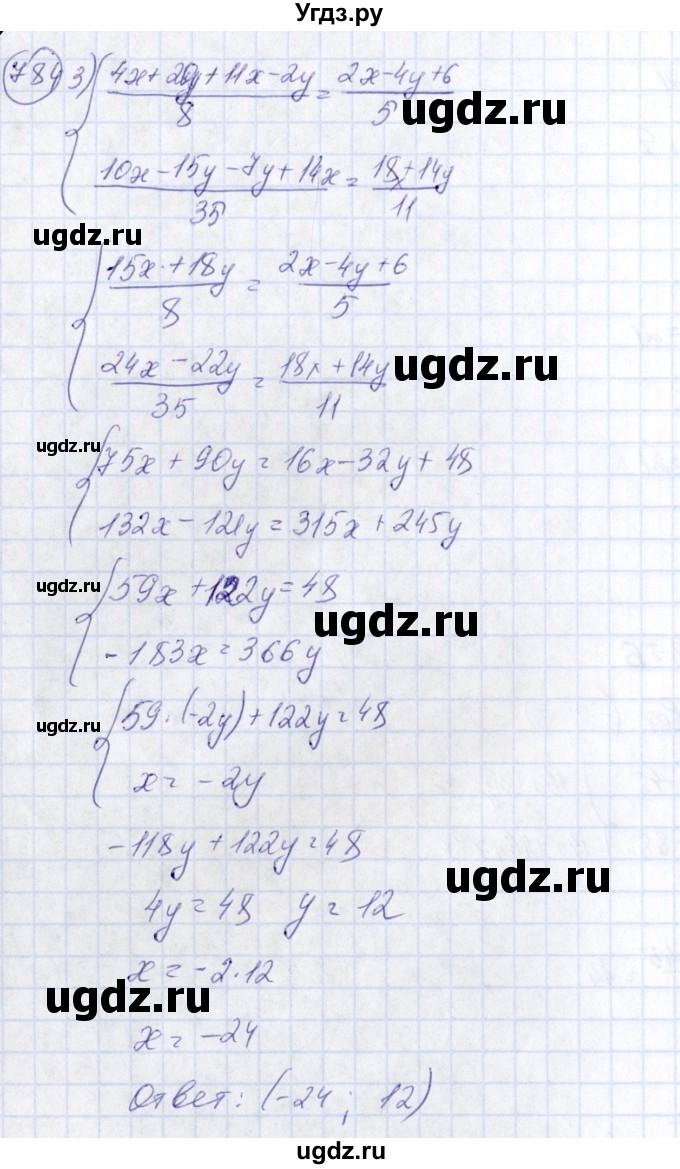 Угдз.ру
784 3) { (4x + 20y + 11x - 2y)/8 = (2x - 4y + 6)/5
ugdz.ru
(10x - 15y - 7y + 14x)/35 = (18x + 14y)/11
ugdz.ru
{ (15x + 18y)/8 = (2x - 4y + 6)/5
(24x - 22y)/35 = (18x + 14y)/11
ugdz.ru
ugdz.ru
{ 75x + 90y = 16x - 32y + 48
132x - 121y = 315x + 245y
ugdz.ru
{ 59x + 122y = 48
ugdz.ru
-183x = 366y
ugdz.ru
{ 59·(-2y) + 122y = 48
x = -2y
-118y + 122y = 48
ugdz.ru
4y = 48 y = 12
x = -2·12
ugdz.ru
x = -24
Ответ: (-24; 12)
ugdz.ru